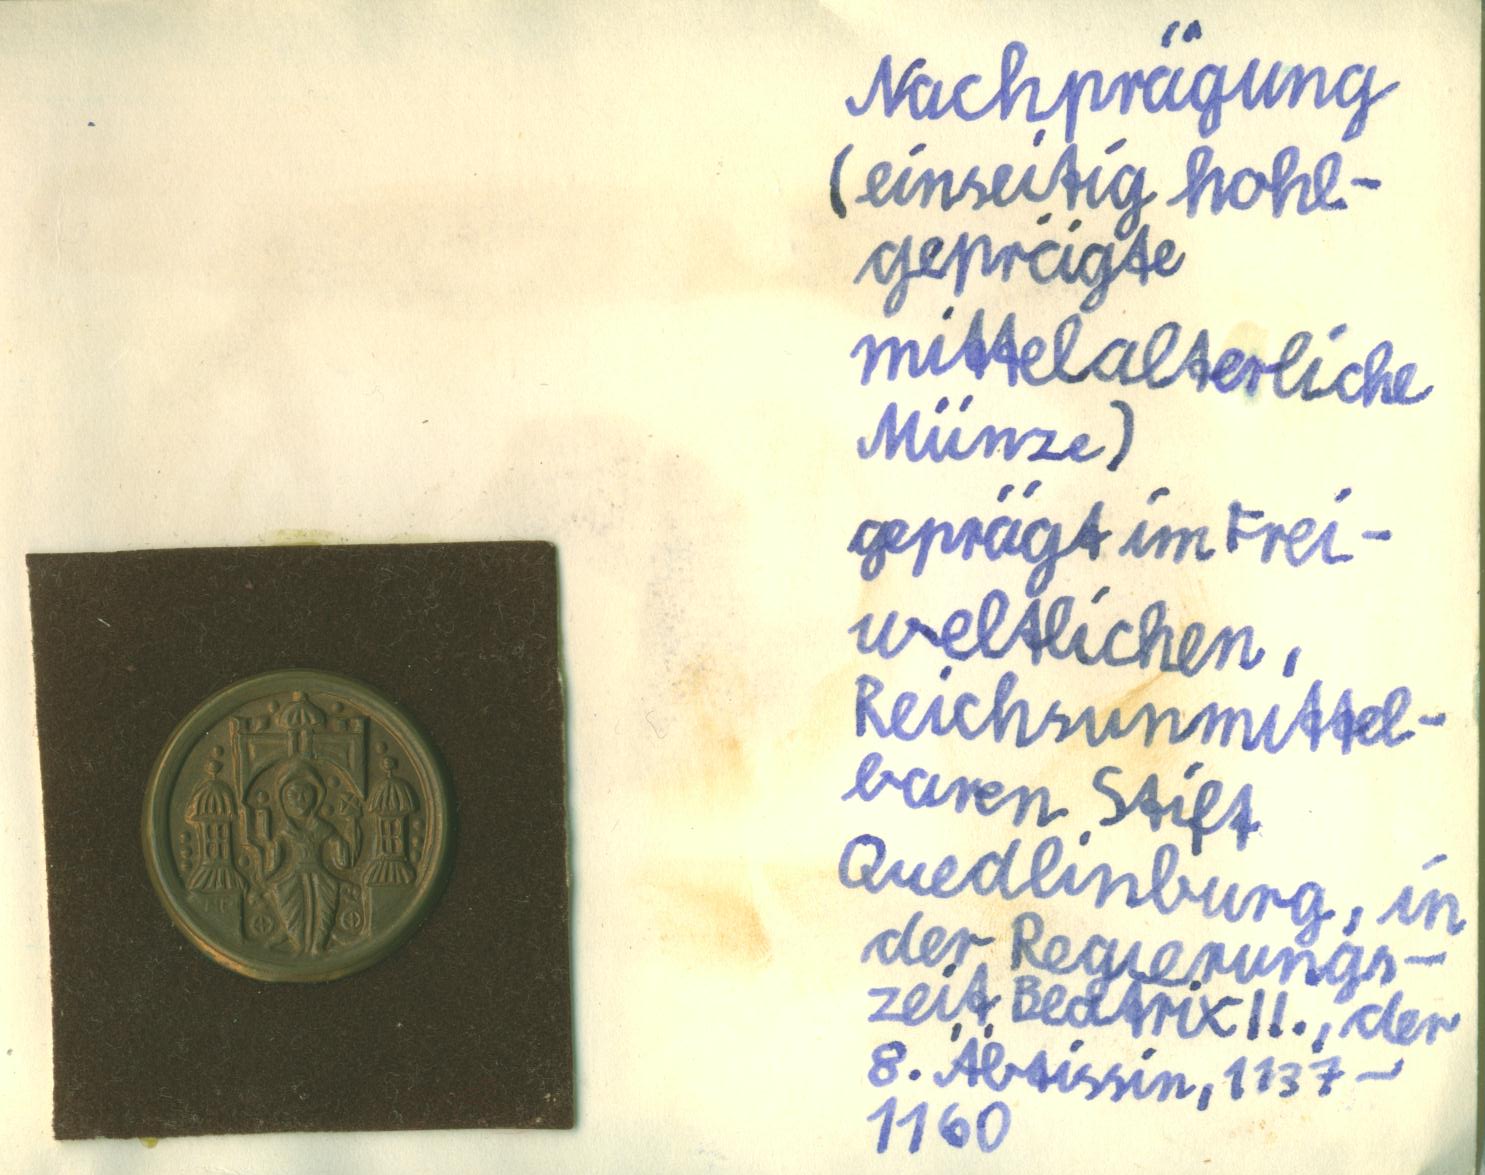 Nachprägung
(einseitig hohl-
geprägte
mittelalterliche
Münze)
geprägt im Frei-
weltlichen,
Reichsunmittel-
baren Stift
Quedlinburg, in
der Regierungs-
zeit Beatrix II., der
8. Äbtissin, 1137-
1160